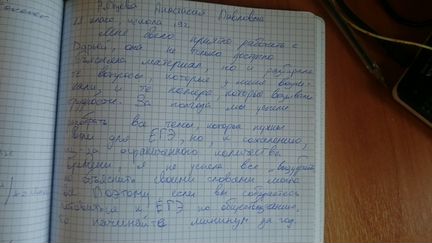 Анастасия Павловна
11 класс, школа 192
Мне было приятно работать с
Дарьей, она не только доступно
объясняла материал, но и разбирала
те вопросы, которые у меня возни-
кали, и те номера которые вызывали
трудности. За полгода мы успели
разобрать все темы, которые нужны
были для ЕГЭ, но, к сожалению,
из-за ограниченного количества
времени я не успела все выучить
и объяснить своими словами могла
не Поэтому, если вы собираетесь
готовиться к ЕГЭ по обществознанию,
то начинайте минимум за год.